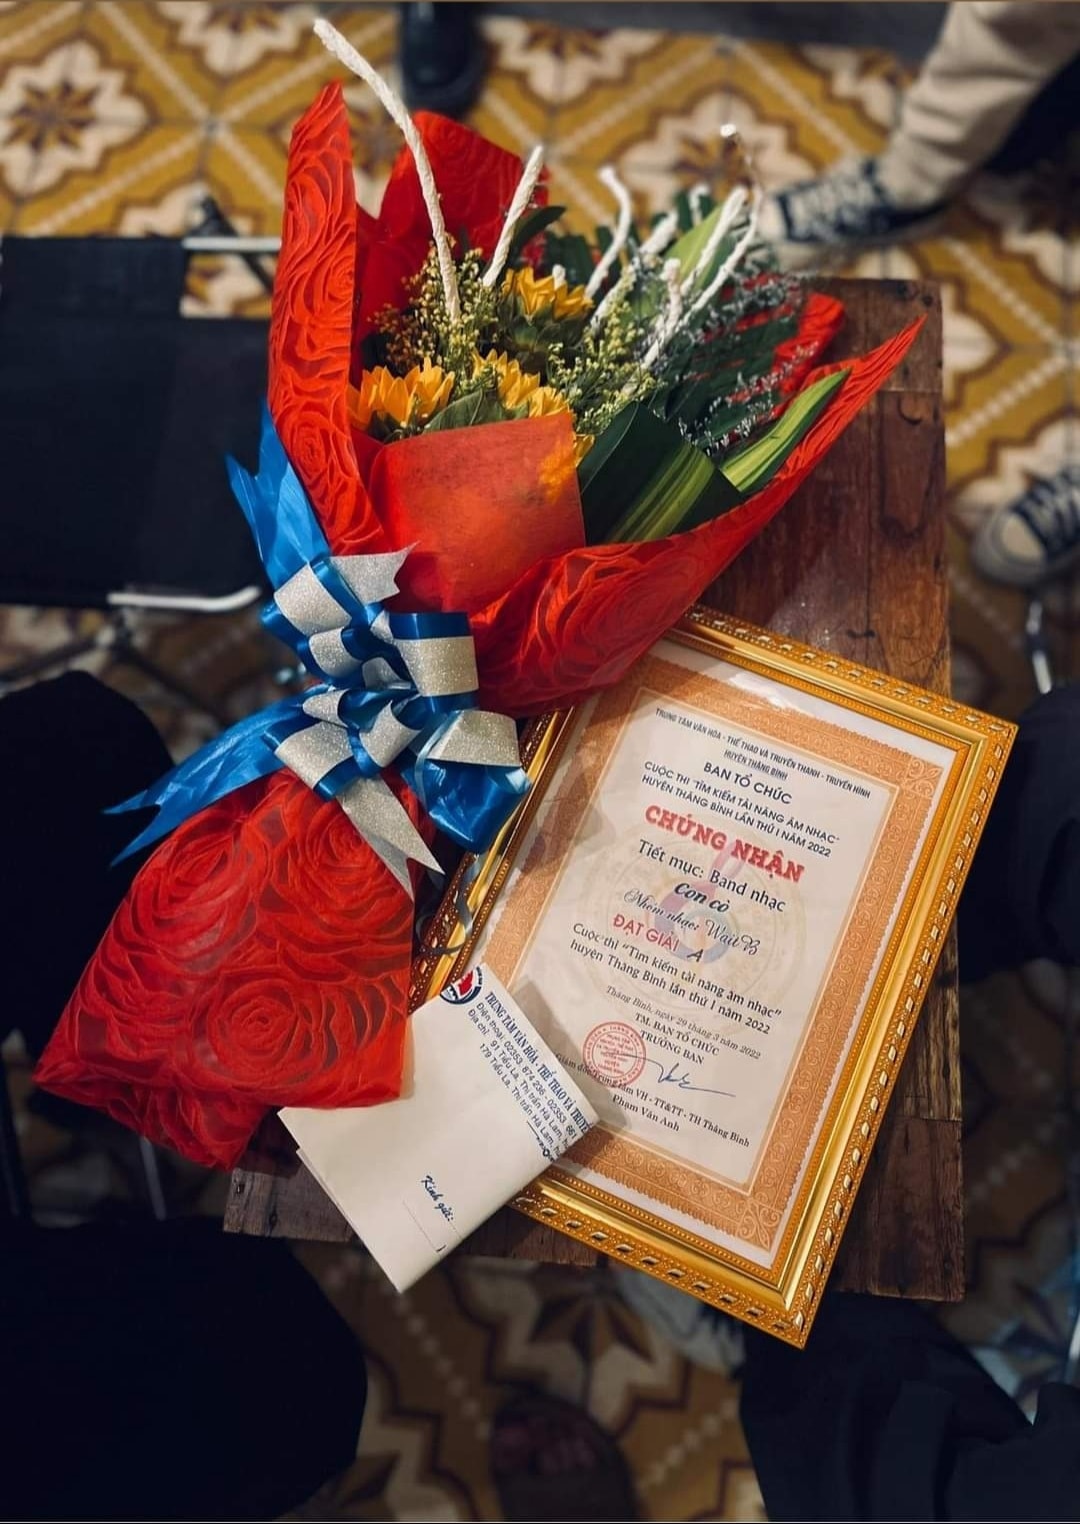 TRUNG TÂM VĂN HÓA - THỂ THAO VÀ TRUYỀN THANH - TRUYỀN HÌNH
HUYỆN THĂNG BÌNH
BAN TỔ CHỨC
CUỘC THI "TÌM KIẾM TÀI NĂNG ÂM NHẠC"
HUYỆN THĂNG BÌNH LẦN THỨ I NĂM 2022
CHỨNG NHẬN
Tiết mục: Band nhạc
Con cò
Nhóm nhạc: Wait B
ĐẠT GIẢI A
Cuộc thi "Tìm kiếm tài năng âm nhạc"
huyện Thăng Bình lần thứ I năm 2022
Thăng Bình, ngày 29 tháng 3 năm 2022
TM. BAN TỔ CHỨC
TRƯỞNG BAN
Giám đốc Trung tâm VH - TT&TT - TH Thăng Bình
Phạm Văn Anh
TRUNG TÂM VĂN HÓA - THỂ THAO VÀ TRUYỀ
Điện thoại: 02353. 874.236 - 02353. 661
Địa chỉ: 91 Tiểu La, Thị trấn Hà Lam,
179 Tiểu La, Thị trấn Hà Lam,
Kính gửi: